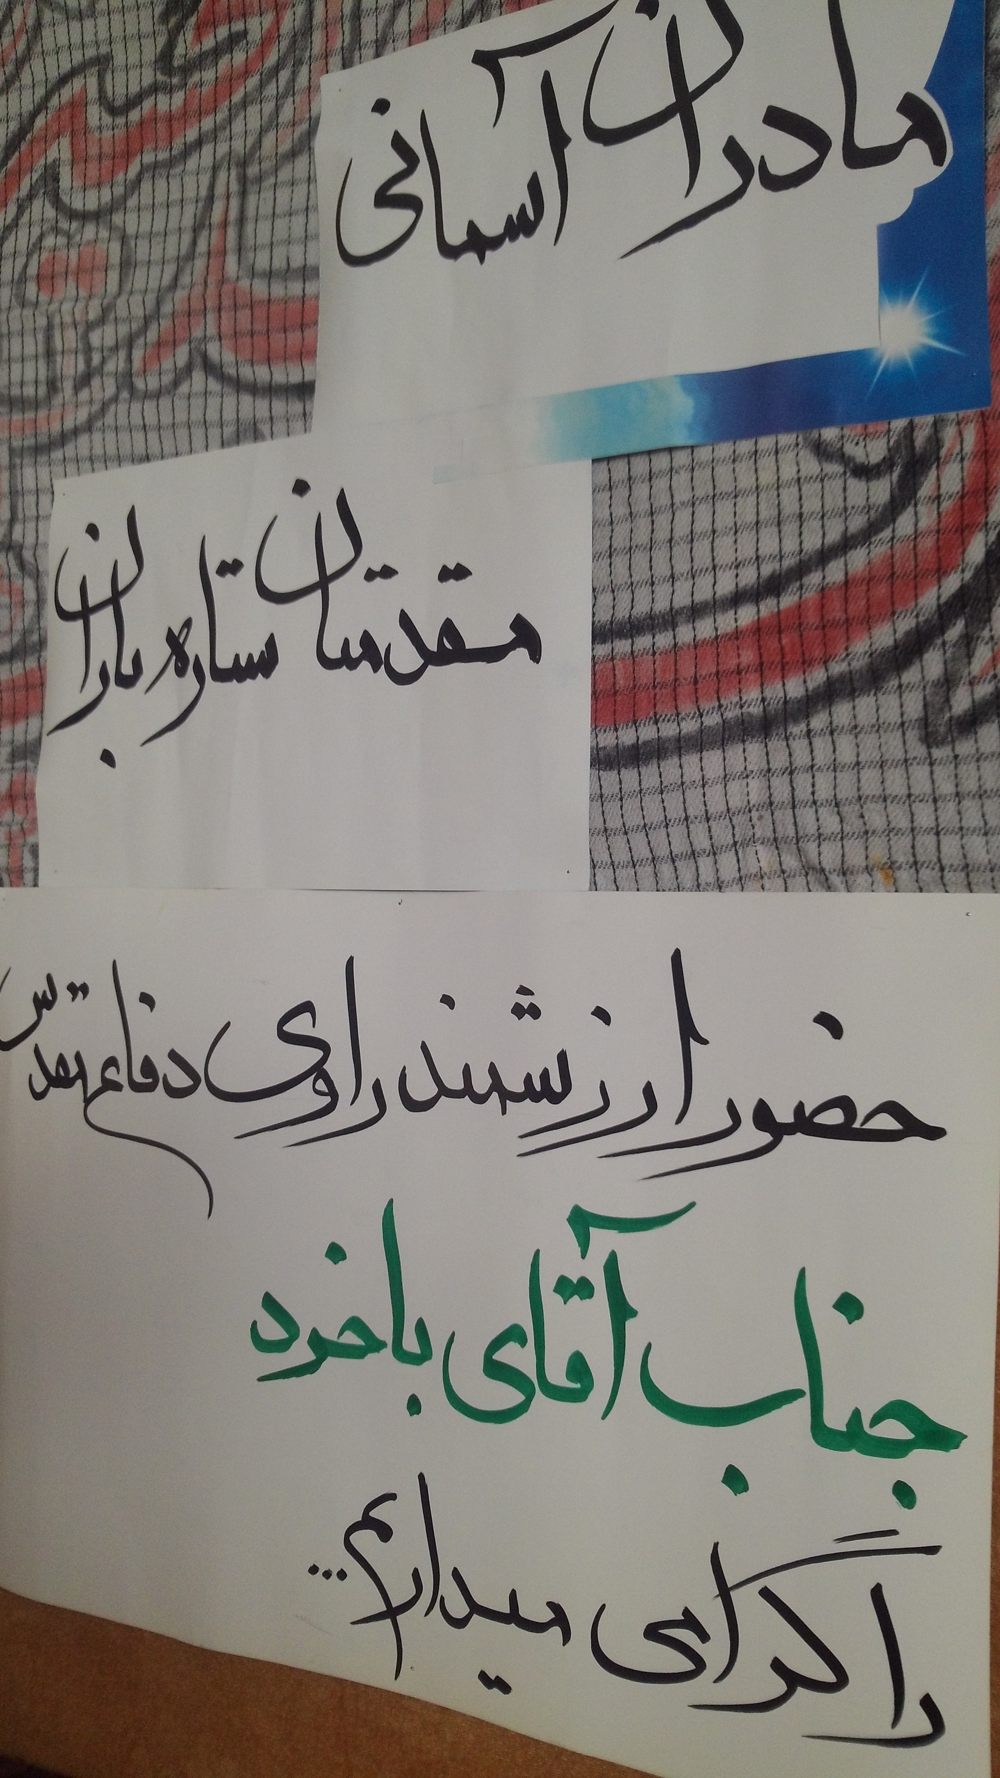 مادران آسمانی
مقدمتان ستاره باران
حضور ارزشمند راوی دفاع مقدس
جناب آقای باخرد
را گرامی میداریم...